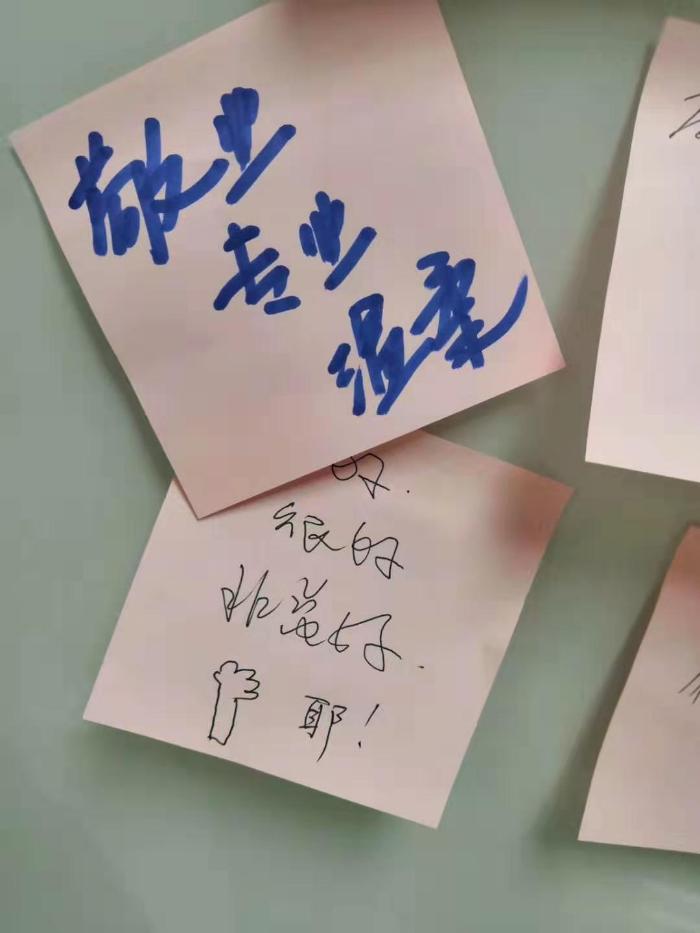 敬业
专业
温柔
好.
很好
非常好.
耶!